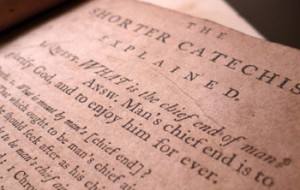 THE
SHORTER CATECHIS
EXPLAINED.
Query. WHAT is the chief end of man?
Answ. Man's chief end is to
glorify God, and to enjoy him for ever.
What is meant by man's [chief end]?
That which ought to be man's chief
should seek after as his